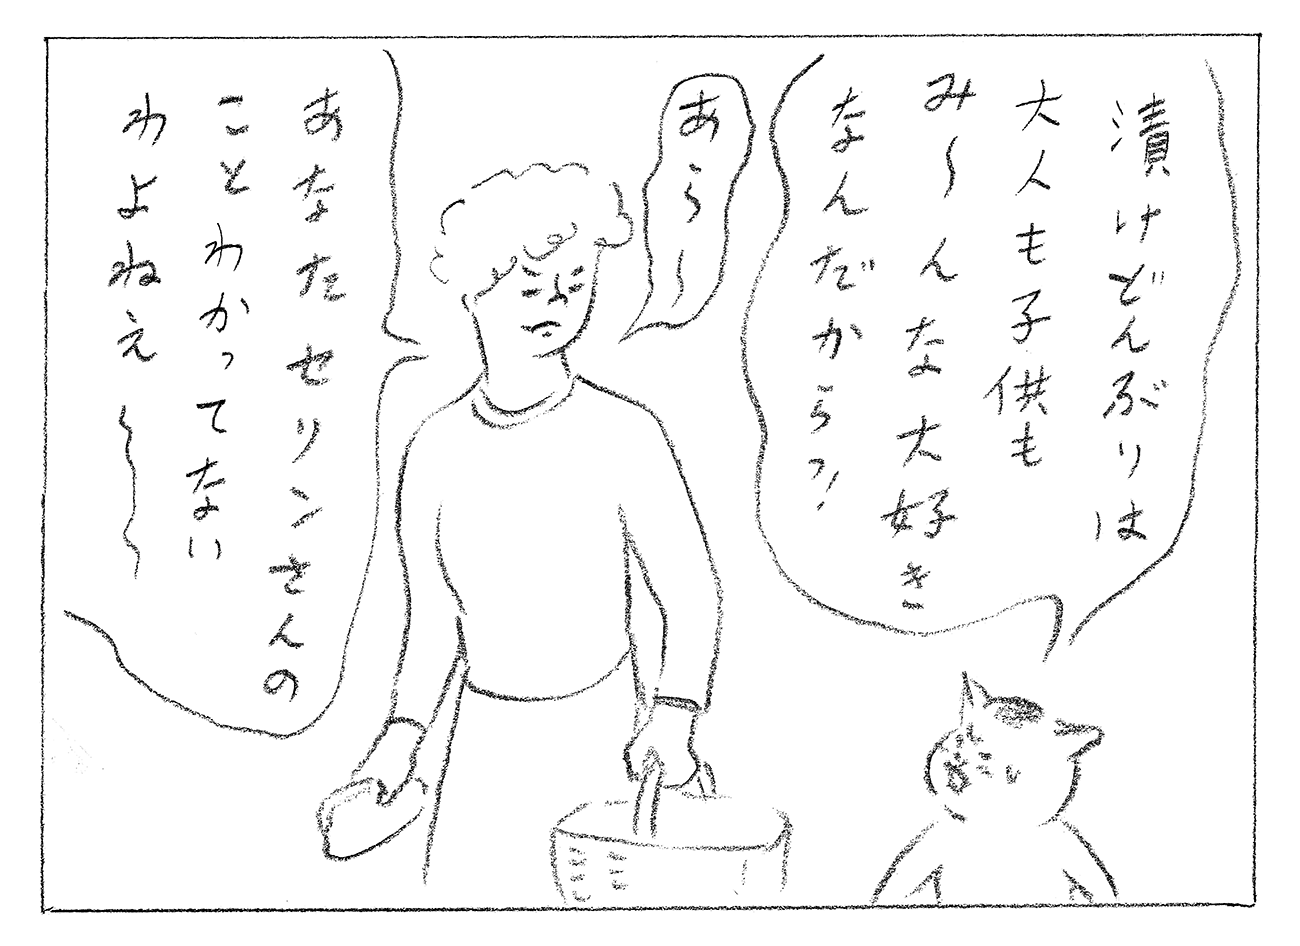 漬けどんぶりは
大人も子供も
み〜んな大好き
なんだからっ!
あら〜
あなたセリンさんの
ことわかってない
わよねえ〜〜